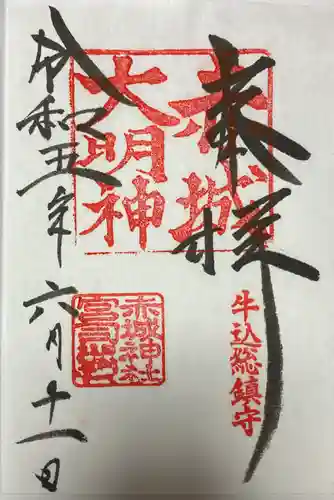 奉拝
赤城
大明神
牛込総鎮守
赤城神社
令和五年六月十一日